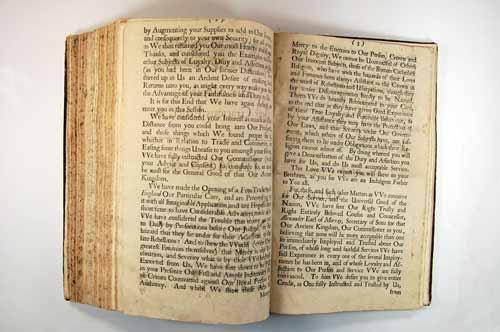 ( 2 )
by Augmenting your Supplies to aid to Our
and consequently to your own Security; for all
as We then returned you Our most hearty
Thanks, and considered you the Examples to
other Subjects of Loyalty, Duty and Affection
(as you had been in Our former Distresses)
stirred up in Us an Ardent Desire of making
Returns unto you, as might every way make for
the Advantage of your Estates
It is for this End that We have again
meet you in this Session.
We have considered your Interest as much as
Distance from you could bring into Our
and those things which We found proper
whether in Relation to Trade and Commerce, or
Easing some things Uneasie to you amongst your selves,
We have fully instructed Our Commissioner (with
your Advice and Consent) to conclude so, as may
be most for the General Good of that Our Ancient
Kingdom.
VVe have made the Opening of a Free Trade with
England Our Particular Care, and are Proceeding in
it with all Imaginable Application, and are Hopeful in a
short time to have Considerable Advances made in it.
VVe have considered the Trouble that many are put
to Daily by Prosecutions before Our Judges, or the
hazard that they lie under for their Accession to the
late Rebellions: And to shew the VVorld (even Our
greatest Enemies themselves) that Mercy is Our
clination, and Severity what is by their VVickedness
Extorted from Us, We have sent down to be past
in your Presence Our Full and Ample Indemnity for
all Crimes Committed against Our Royal Person or
Authority. And whilst We shew these Acts of
Mercy
( 3 )
Mercy to the Enemies to Our Person, Crown and
Royal Dignity, We cannot be Unmindful of Others
Our Innocent Subjects, those of the Roman Catholick
Religion, who have with the hazards of their Lives
and Fortunes been always Assistant to the Crown in
the worst of Rebellions and Usurpations, though they
lay under Discouragements hardly to be Named.
Them VVe do heartily Recommend to your Care,
to the end that as they have given Good Experience
of their True Loyalty and Peaceable Behaviour, so
by your Assistance they may have the Protection of
Our Laws, and that Security under Our Government,
which others of Our Subjects have, not
suffering them to lie under Obligations which their Religion
cannot admit of. By doing whereof you will
give a Demonstration of the Duty and Affection you
have for Us, and do Us most acceptable Service.
This Love VVe expect you will shew to your
Brethren, as you see VVe are an Indulgent Father
to You all.
For these, and such other Matters as VVe conceive
for Our Service, and the Universal Good of the
Nation, VVe have sent Our Right Trusty and
Right Entirely Beloved Cousin and Councellor,
Alexander Earl of Morray, Secretary of State for
Our Ancient Kingdom, Our Commissioner to you,
believing that none will be more acceptable than one
so immediately Employed and Trusted about Our
Person, of whose long and faithful Services VVe have
full Experience in every one of the several Employments
he has been in, and of whose Loyalty and Affection
to Our Person and Service VVe are fully
convinced. To him VVe desire you to give entire
Credit, as One fully Instructed and Trusted by Us,
from